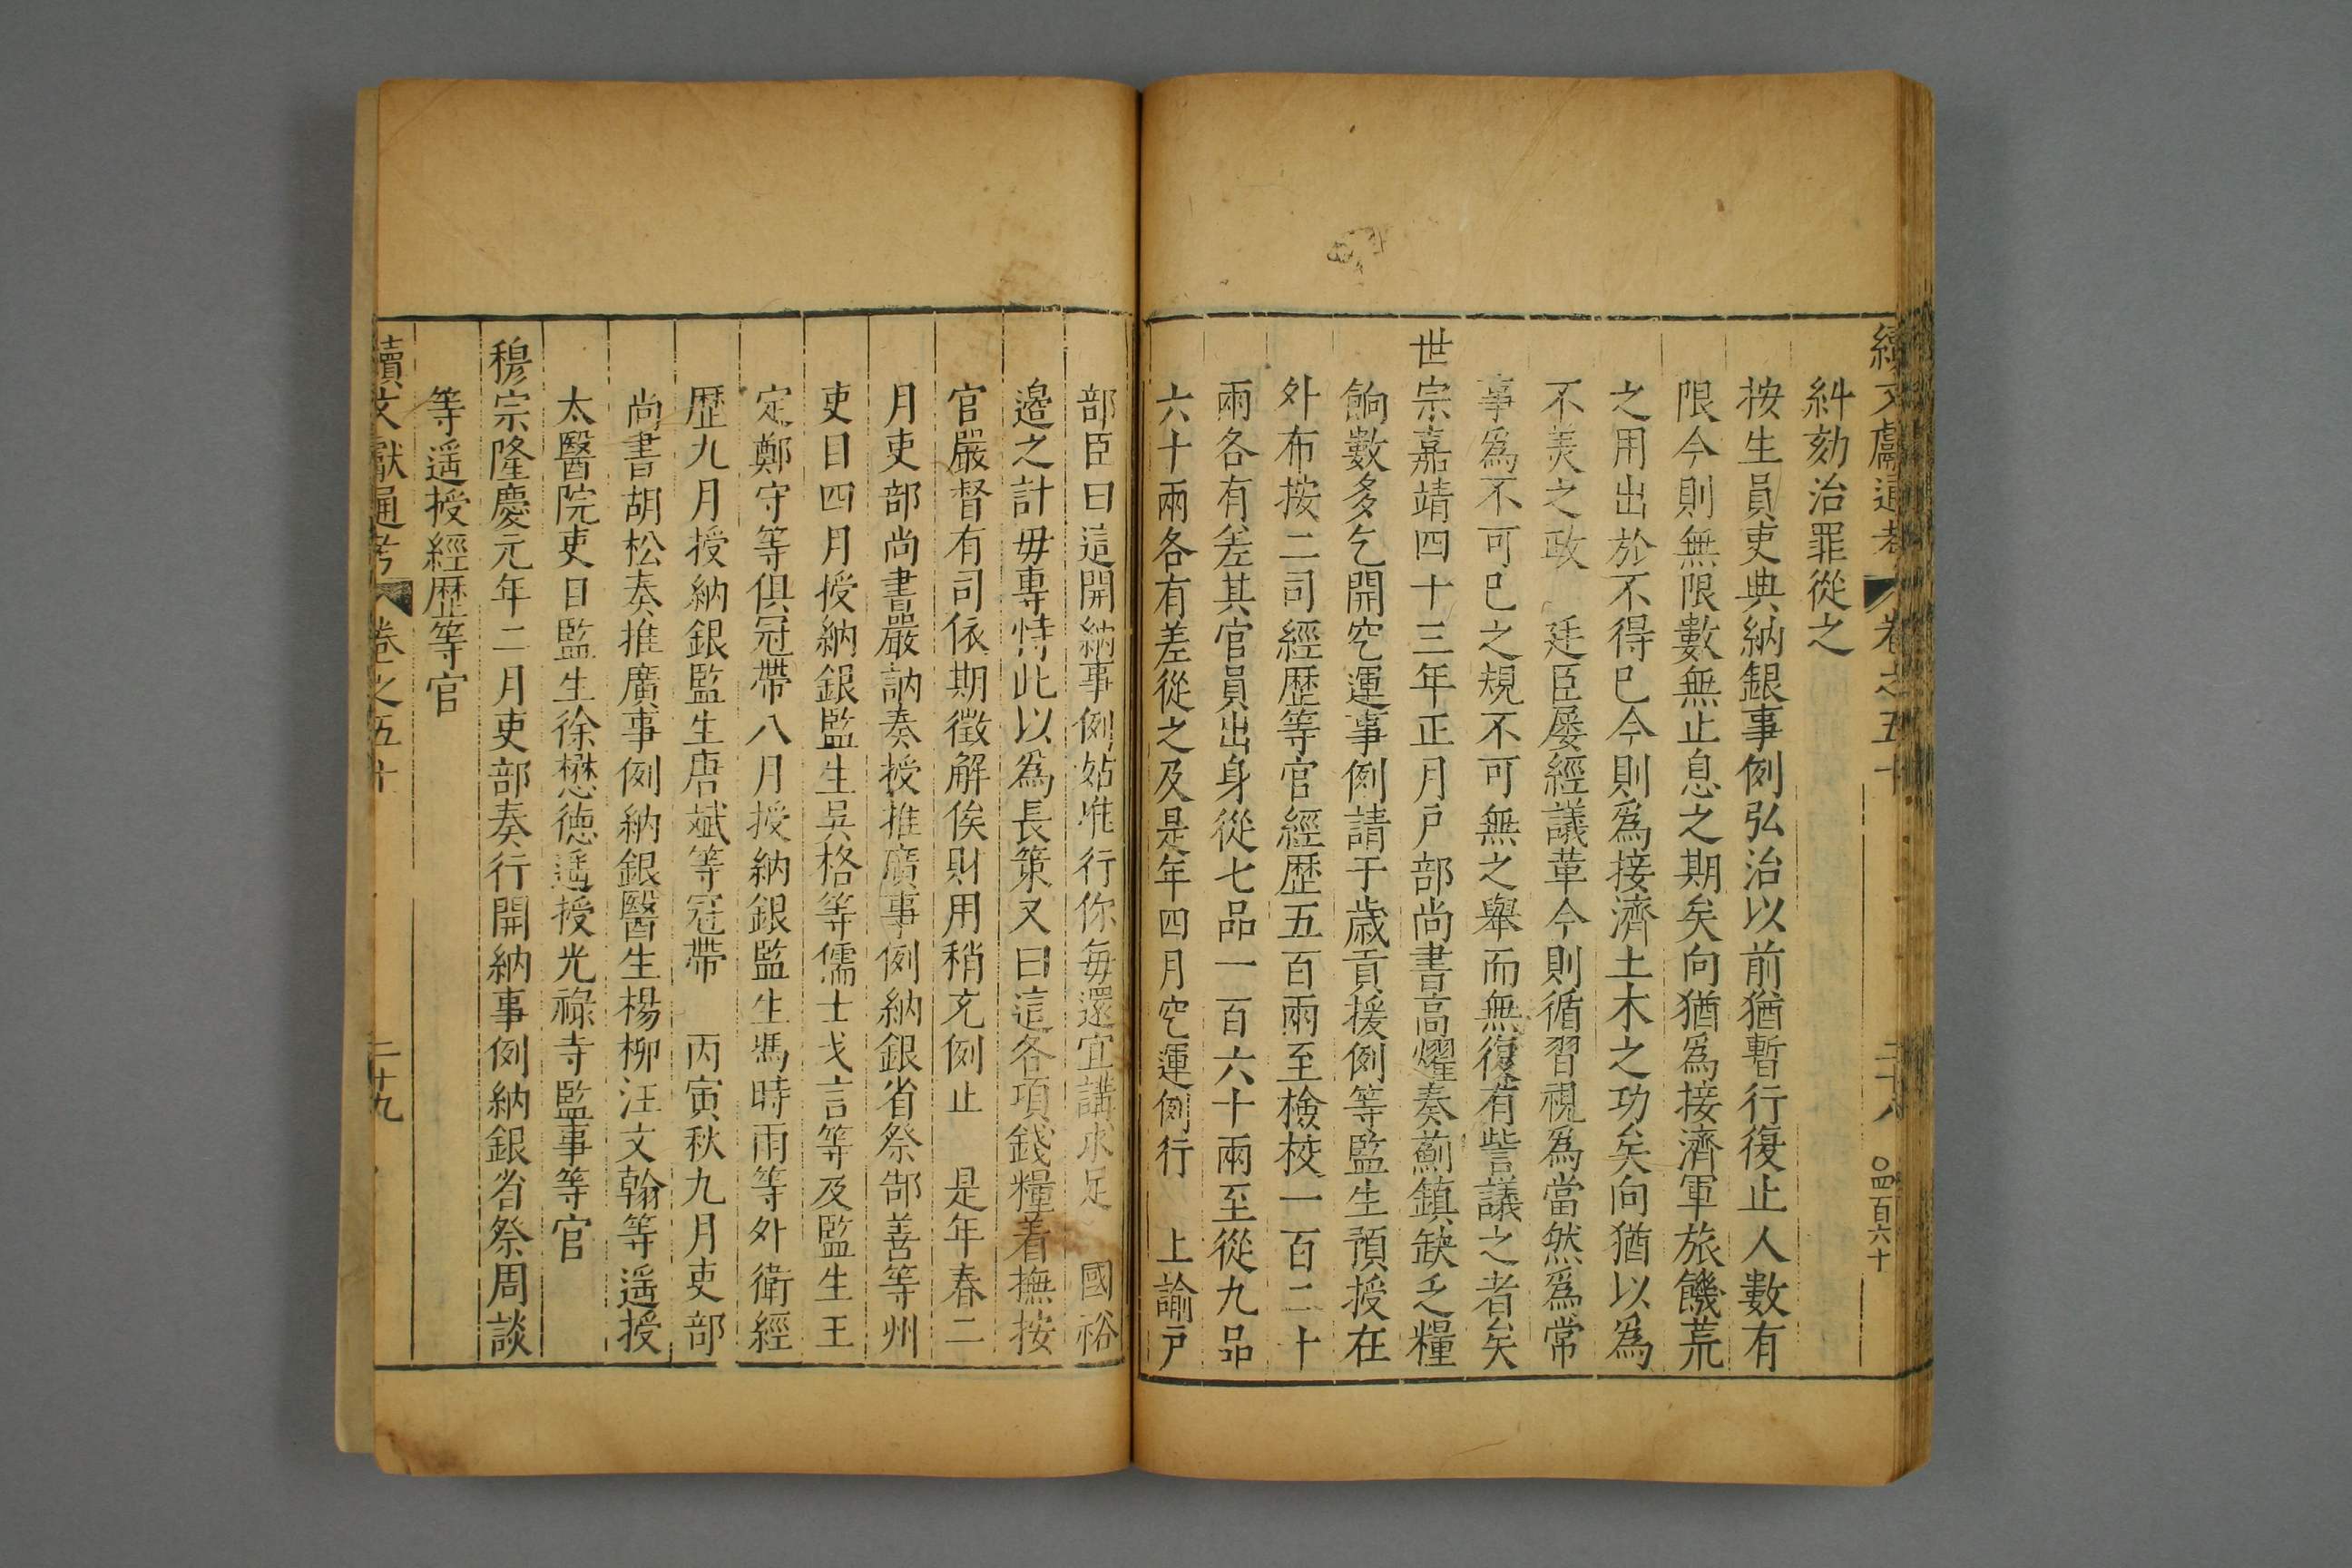 續文獻通考 卷之五十 二十八 〇四百六十
糾劾治罪從之
按生員吏典納銀事例弘治以前猶暫行復止人數有
限今則無限數無止息之期矣向猶爲接濟軍旅饑荒
之用出於不得巳今則爲接濟土木之功矣向猶以爲
不美之政 廷臣屡經議革今則循習視爲當然爲常
事爲不可巳之規不可無之舉而無復有訾議之者矣
世宗嘉靖四十三年正月戸部尚書高燿奏薊鎮缺乏糧
餉數多乞開空運事例請于歳貢援例等監生預授在
外布按二司經歴等官經歴五百兩至檢校一百二十
兩各有差其官員出身從七品一百六十兩至從九品
六十兩各有差從之及是年四月空運例行 上諭戸
部臣曰這開納事例姑准行你每還宜講求足 國裕
邉之計毋專恃此以爲長策又曰這各項錢糧着撫按
官嚴督有司依期徵解俟財用稍充例止 是年春二
月吏部尚書嚴訥奏授推廣事例納銀省祭郜善等州
吏目四月授納銀監生吳格等儒士戈言等及監生王
定鄭守等俱冠帶八月授納銀監生馮時雨等外衛經
歴九月授納銀監生唐斌等冠帶 丙寅秋九月吏部
尚書胡松奏推廣事例納銀醫生楊柳汪文翰等遥授
太醫院吏目監生徐懋德遥授光祿寺監事等官
穆宗隆慶元年二月吏部奏行開納事例納銀省祭周談
等遥授經歴等官
續文獻通考 卷之五十 二十九